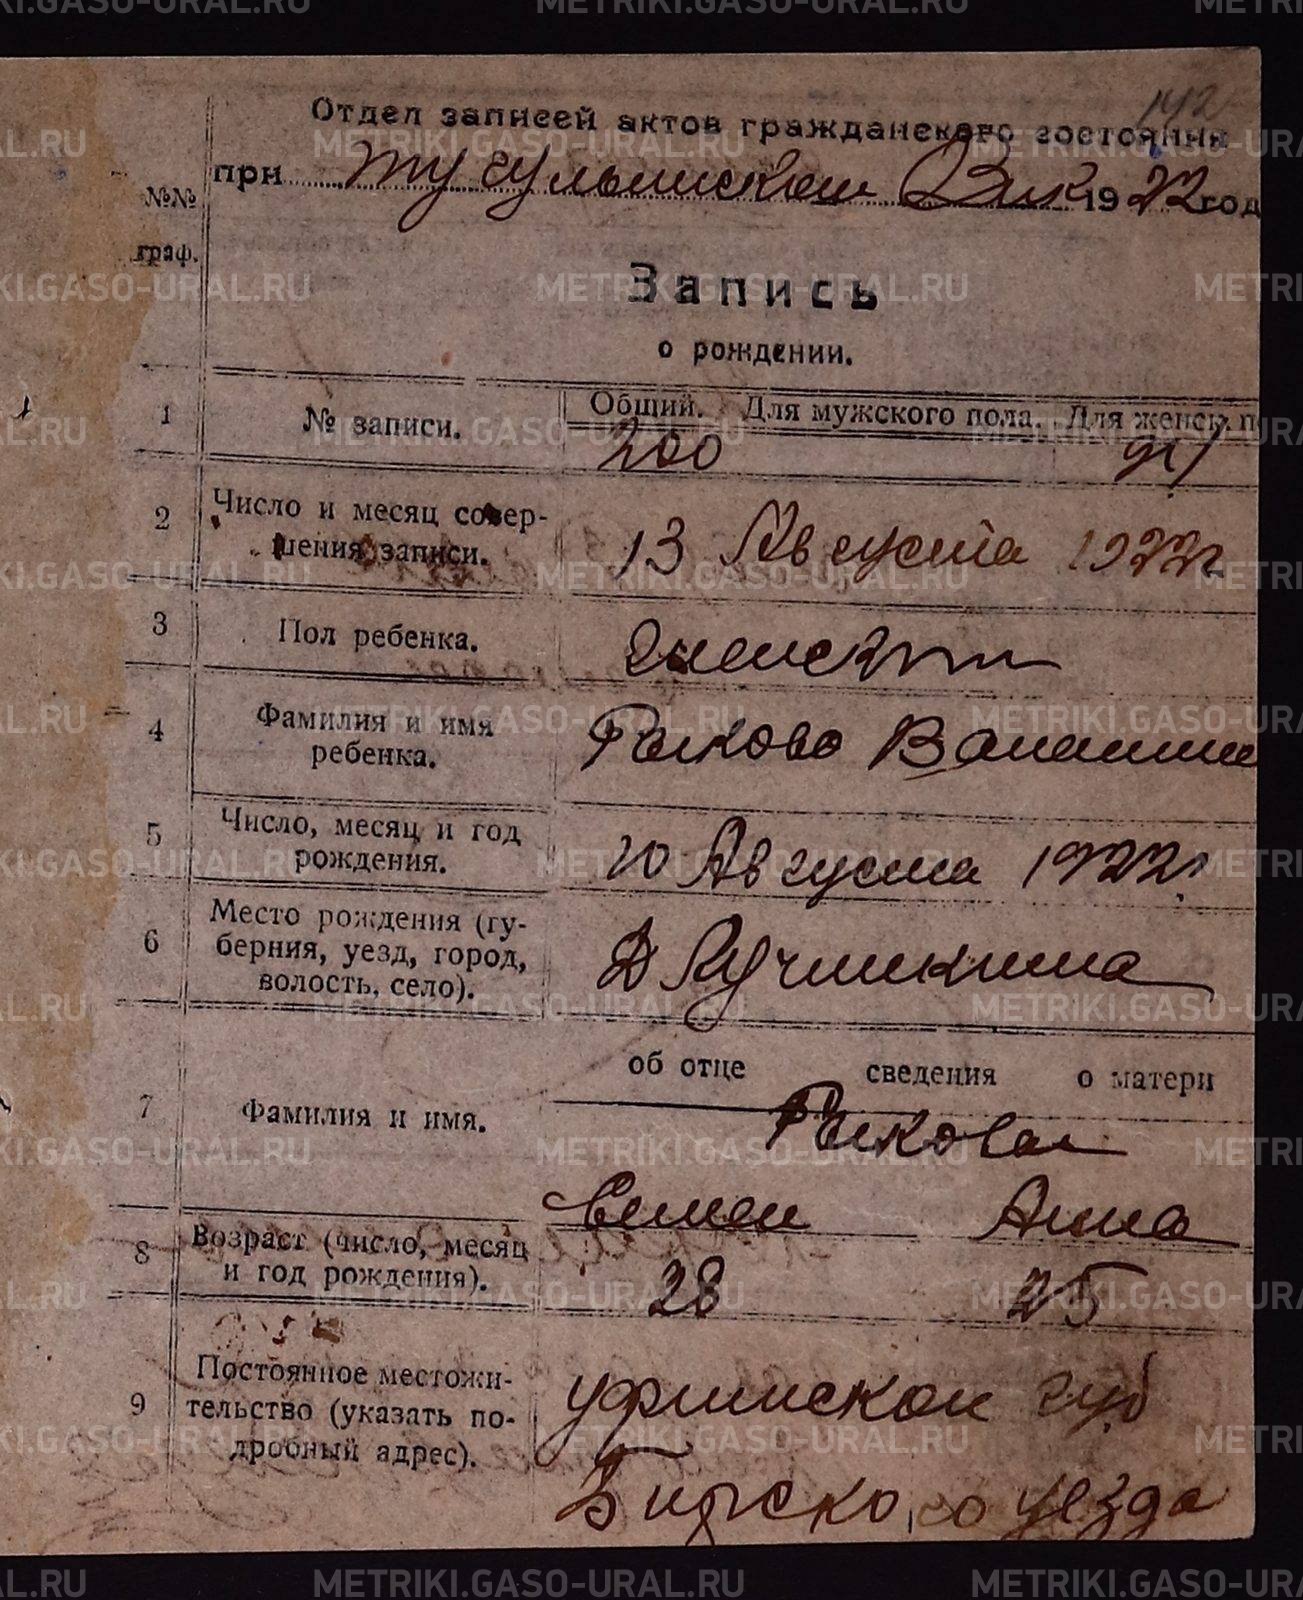 142
Отдел записей актов гражданского состояния
при Тугулымском Вик 1922 год
№№
граф.
Запись
о рождении.
1 № записи. Общий. Для мужского пола. Для женск. п
200 91
2 Число и месяц совер-
шения записи. 13 Августа 1922г
3 Пол ребенка. женский
4 Фамилия и имя
ребенка. Рыкова
5 Число, месяц и год
рождения. 10 Августа 1922г
6 Место рождения (гу-
берния, уезд, город,
волость, село). Д
об отце сведения о матери
7 Фамилия и имя. Рыковы
Семен Анна
8 Возраст (число, месяц
и год рождения). 28 25
9 Постоянное местожи-
тельство (указать по-
дробный адрес). Уфимской губ
Бирского уезда
METRIKI.GASO-URAL.RU